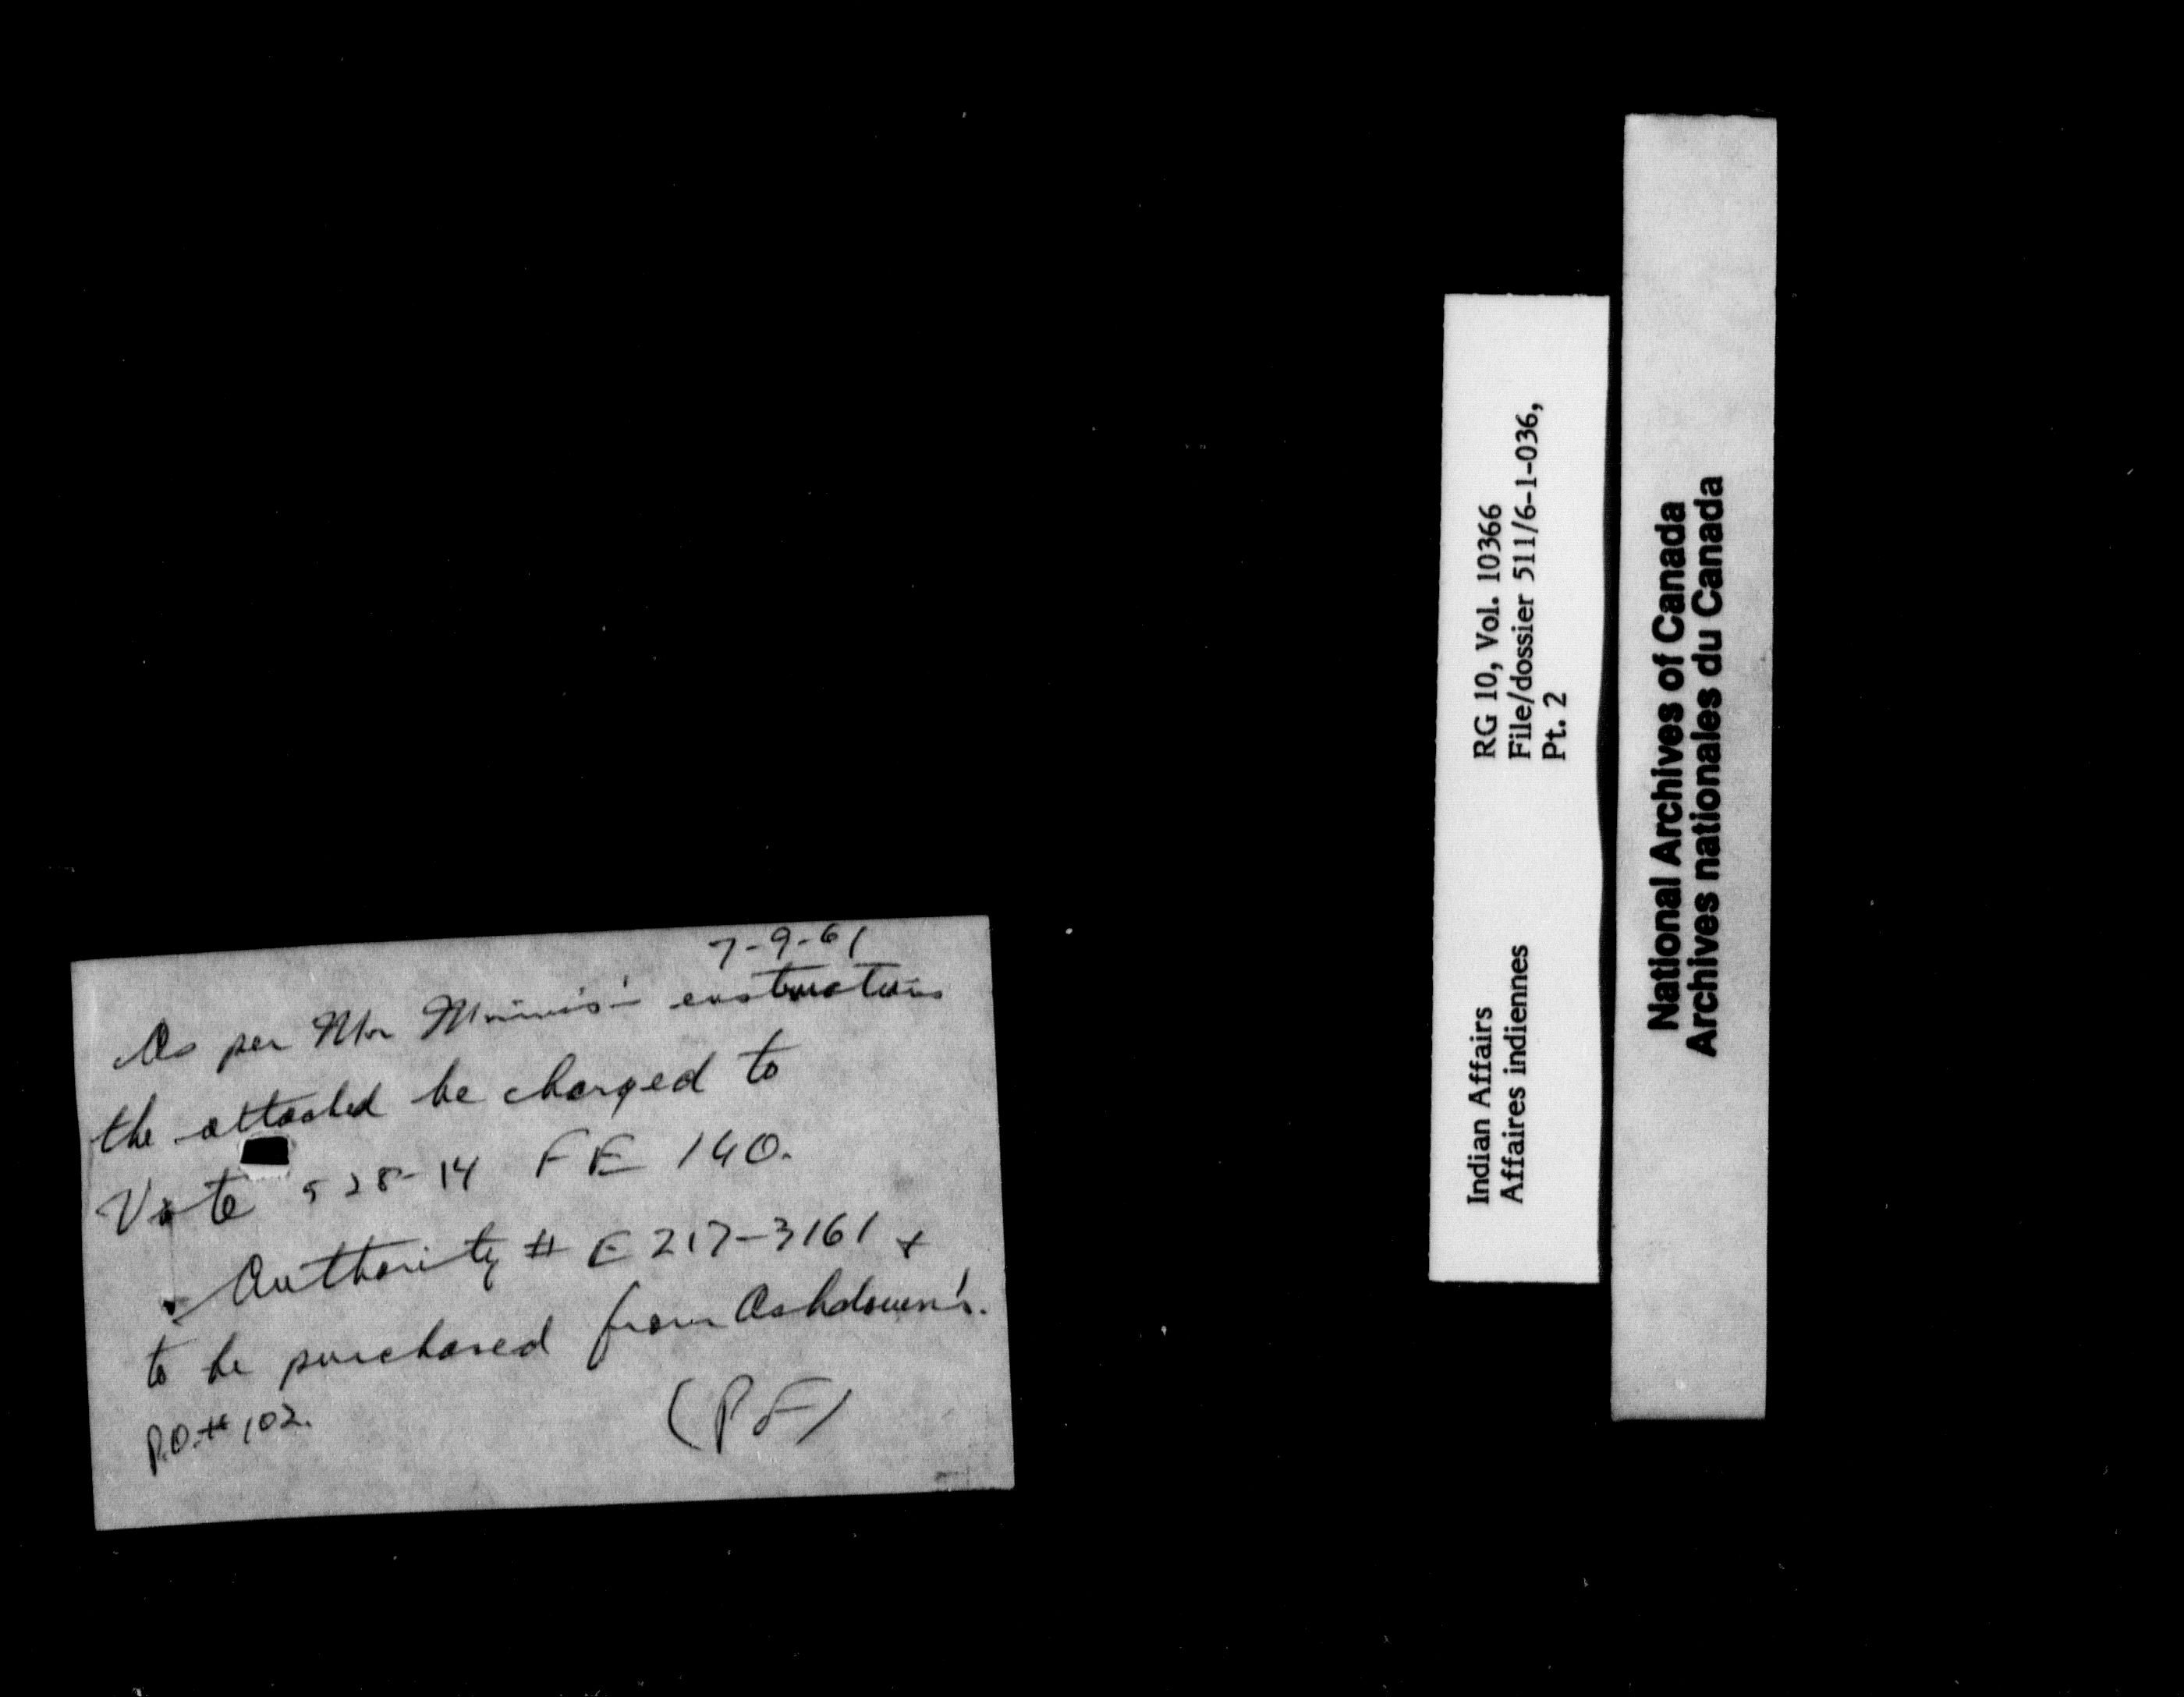 7-9-61
As per Mr instructions
the attached be charged to
Vote 528-14 FE 140.
Authority # E217-3161 +
to be purchased from Ashdown's.
P.O. # 102.
(PF)
RG 10, Vol. 10366
File/dossier 511/6-1-036,
Pt. 2
Indian Affairs
Affaires indiennes
National Archives of Canada
Archives nationales du Canada